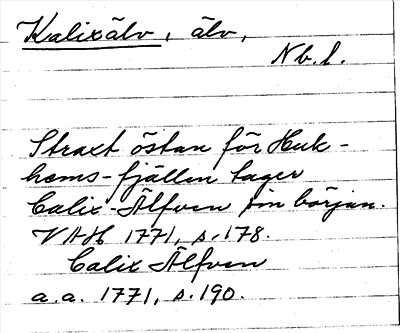 Kalixälv, älv,
Nb. l.
Straxt östan för Huk-
hems-fjällen tager
Calix-Älfven sin början.
VAH 1771, s. 178.
Calix Älfven
a.a. 1771, s. 190.